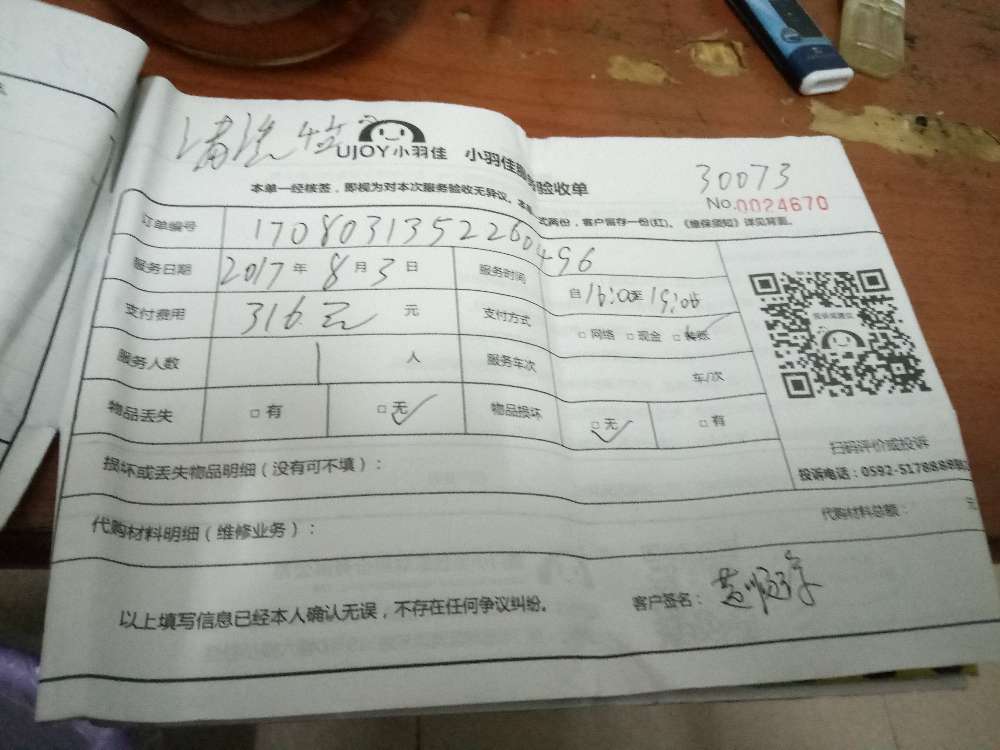 清洗
UJOY小羽佳 小羽佳服务验收单
30073
No.0024670
本单一经核签,即视为对本次服务验收无异议。本单 式两份,客户留存一份(红)。《维保须知》详见背面。
订单编号 17080313522260496
服务日期 2017年 8月 3日 服务时间 自16:00至19:06
支付费用 316.元 元 支付方式 □网络 □现金 □转账
服务人数 1 人 服务车次 车/次
物品丢失 □有 □无 物品损坏 □无 □有
损坏或丢失物品明细(没有可不填):
代购材料明细(维修业务): 代购材料总额: 元
以上填写信息已经本人确认无误,不存在任何争议纠纷。 客户签名:
投诉或建议
扫码评价或投诉
投诉电话:0592-5178888